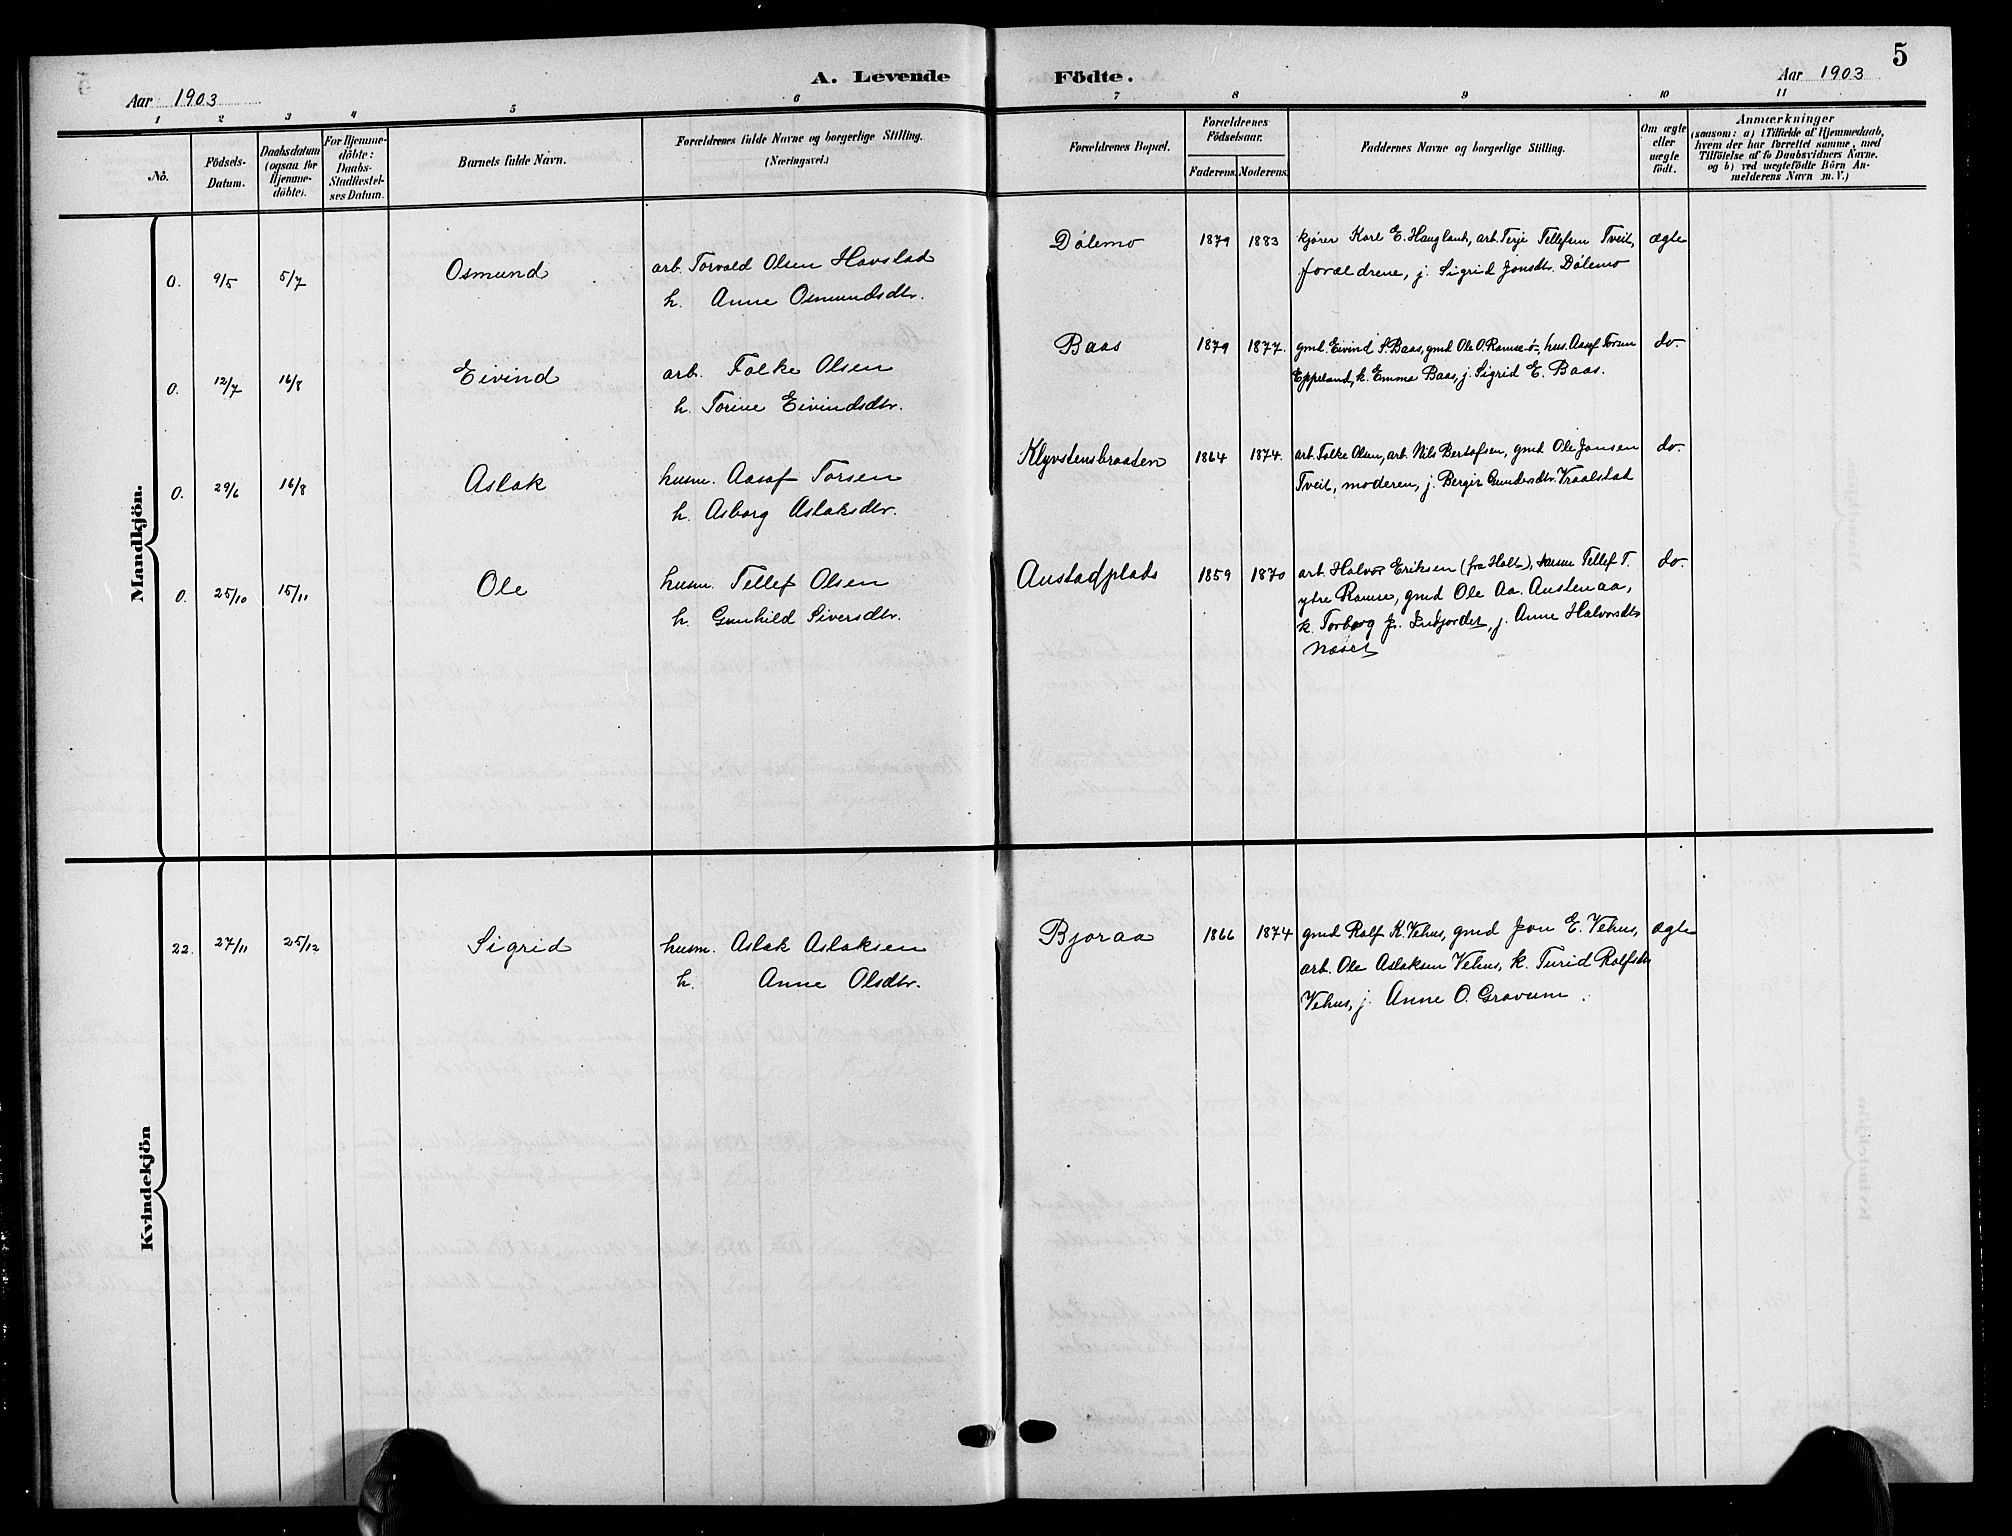 5
A. Levende Födte.
Aar 1903
Aar 1903
1 2 3 4 5 6 7 8 9 10 11
No.
Födsels-Datum.
Daabsdatum (ogsaa for Hjemme-döbte).
For Hjemme-döbte: Daabs-Stadfæstel-ses Datum.
Barnets fulde Navn.
Forældrenes fulde Navne og borgerlige Stilling.
(Næringsvei.)
Forældrenes Bopæl.
Forældrenes Födselsaar.
Faderens. Moderens.
Faddernes Navne og borgerlige Stilling.
Om ægte eller uægte födt.
Anmærkninger
(saasom: a) i Tilfælde af Hjemmedaab,
hvem der har forrettet samme, med
Tilföielse af to Daabsvidners Navne.
og b) ved uægtefödte Börn An-
melderens Navn m. V.)
Mandkjön.
0. 9/5 5/7 Osmund arb. Torvald Olsen Havstad
h. Anne Osmundsdtr.
Dölemo 1879 1883 kjører Karl E. Haugland, arb. Terje Tellefsen Tveit, ægte
forældrene, j. Sigrid Jonsdtr. Dölemo
0. 12/7 16/8 Eivind arb. Folke Olsen
h. Torine Eivindsdtr.
Baas 1879 1877. gmd. Eivind S. Baas, gmd Ole O. Ramse ö., hus. Aasof Torsen do.
Eppeland, k. Emma Baas, j. Sigrid E. Baas.
0. 29/6 16/8 Aslak husm. Aasof Torsen
h. Asborg Aslaksdtr.
Klyvstensbraaten 1864 1874. arb. Folke Olsen, arb. Nils Bertofsen, gmd Ole Jansen do.
Tveit, moderen, j. Bergit Gundersdtr. Vraalstad
0. 25/10 15/11 Ole husm. Tellef Olsen
h. Gunhild Siversdtr.
Austadplads 1859 1870 arb. Halvor Eriksen (fra Holt), husm Tellef T. do.
ytre Ramse, gmd Ole Aa. Austenaa,
k. Torborg, j. Anne Halvorsdtr
Næset
Kvindekjön
22. 27/11 25/12 Sigrid husm. Aslak Aslaksen
h. Anne Olsdtr.
Bjoraa 1866 1874 gmd Rolf K. Vehus, gmd Jon E. Vehus, ægte
arb. Ole Aslaksen Vehus, k. Turid Rolfsdtr
Vehus, j. Anne O. Gravum.